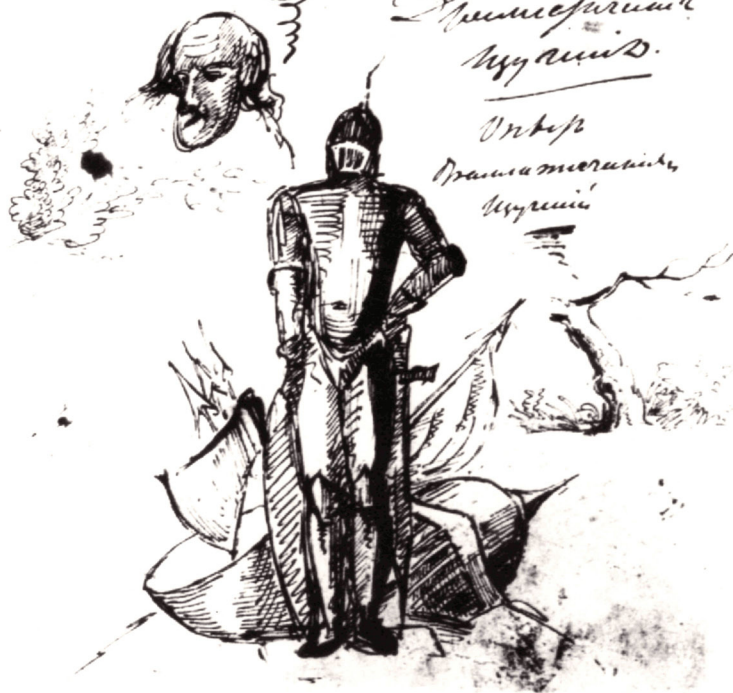 Драматическія
Изученія.
Опытъ
драматическихъ
Изученій